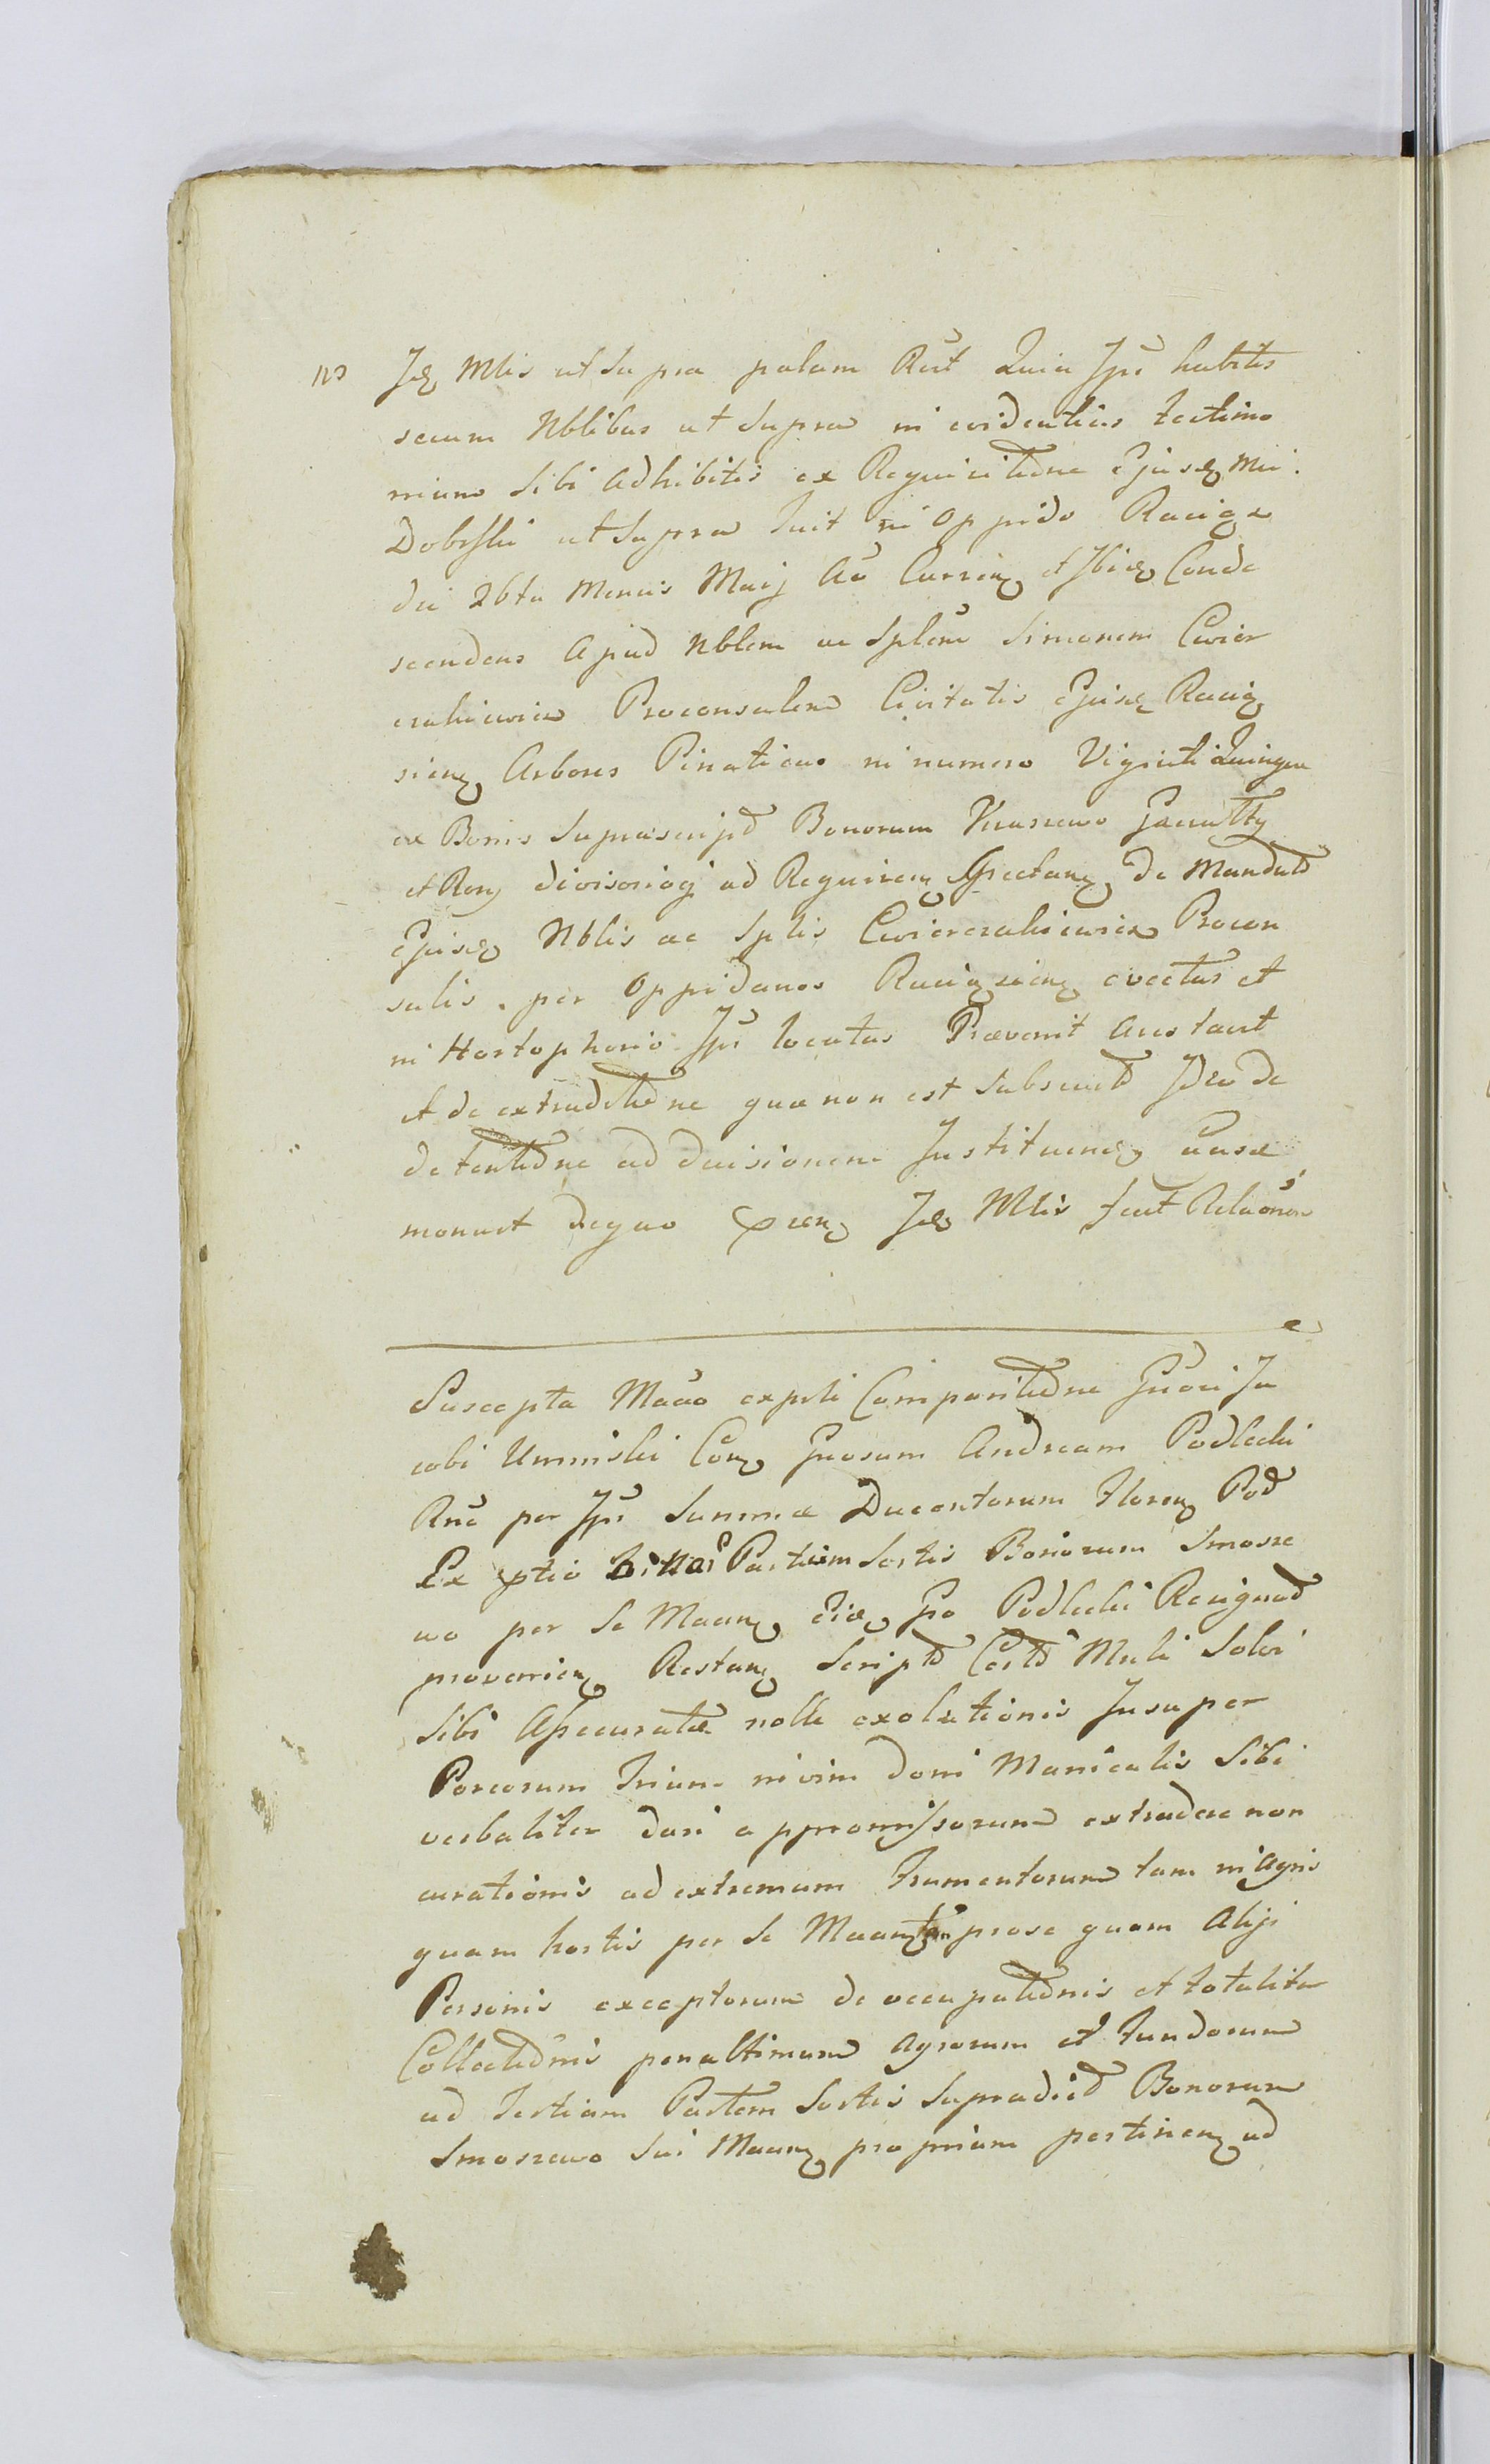 Mlis ut Supra palam Rct Quia Ips habitis
secum Nblibus ut Supra in evidentius testimo
nium Sibi Adhibitis ex Requisitione Ejusq Mci
Dobrski ut Supra fuit in Oppido Raciąż
die 26ta Mensis Maij Ao Curren et Ibiq Conde
scendens Apud Nblem ac Splem Simonem Cwier
czakiewicz Proconsulem Civitatis Ejusq Raciąz
sien Arbores Pinaticas in numero Viginti Quinque
ex Bonis Suprascript Bonorum Kraszewo
et divisoriaq ad Requiren Spectan De Mandato
Ejusq Nblis ac Splis Cwierczakiewicz Procon
sulis per Oppidanos Raciązsien evectas et
in Hortophorio Ips locatas Praevenit Arestavit
et de extraditione quae non est Subsecuta Ideo de
detentione ad decisionem Instituen causae
monuit de quo Mlis fecit Relaonem
Suscepta Mao expsti Comparitione Gnosi Ja
cobi Uminski Con Gnosum Andream Podlecki
per Ips Summae Ducentorum Floren Pol
Ex Partium Sortis Bonorum Smosze
wo per Se Podlecki Resignat
provenien Restan Script Certo Solvi
Sibi Assecuratae nolle exolutionis Insuper
Porcorum Trium in vim doni Manicalis Sibi
verbaliter dari appromissorum extradere non
curationis ad extremum Frumentorum tam in Agris
quam hortis per Se pro se quam Alijs
Personis exceptorum de occupationis et totaliter
Collectionis penultimum Agrorum et Fundorum
ad Tertiam Partem Sortis Supradict Bonorum
Smoszewo Sui propriam pertinen ad